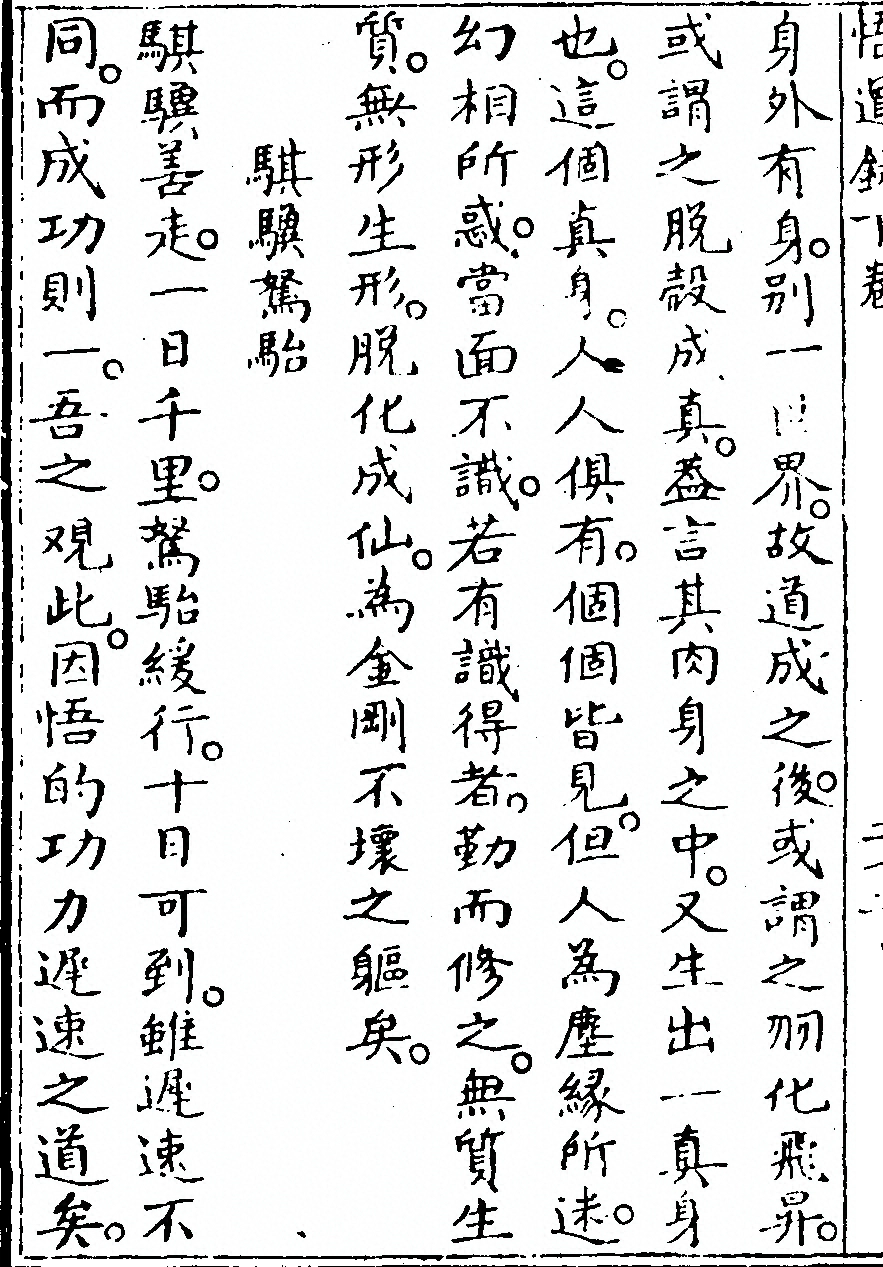 悟道錄下卷
身外有身。别一世界。故道成之後。或謂之羽化飛昇。
或謂之脫殼成真。葢言其肉身之中。又生出一真身
也。這個真身。人人俱有。個個皆見。但人為塵緣所迷。
幻相所惑。當面不識。若有識得者。勤而修之。無質生
質。無形生形。脫化成仙。為金剛不壞之軀矣。
騏驥駑駘
騏驥善走。一日千里。駑駘緩行。十日可到。雖遲速不
同。而成功則一。吾之观此。因悟的功力遲速之道矣。